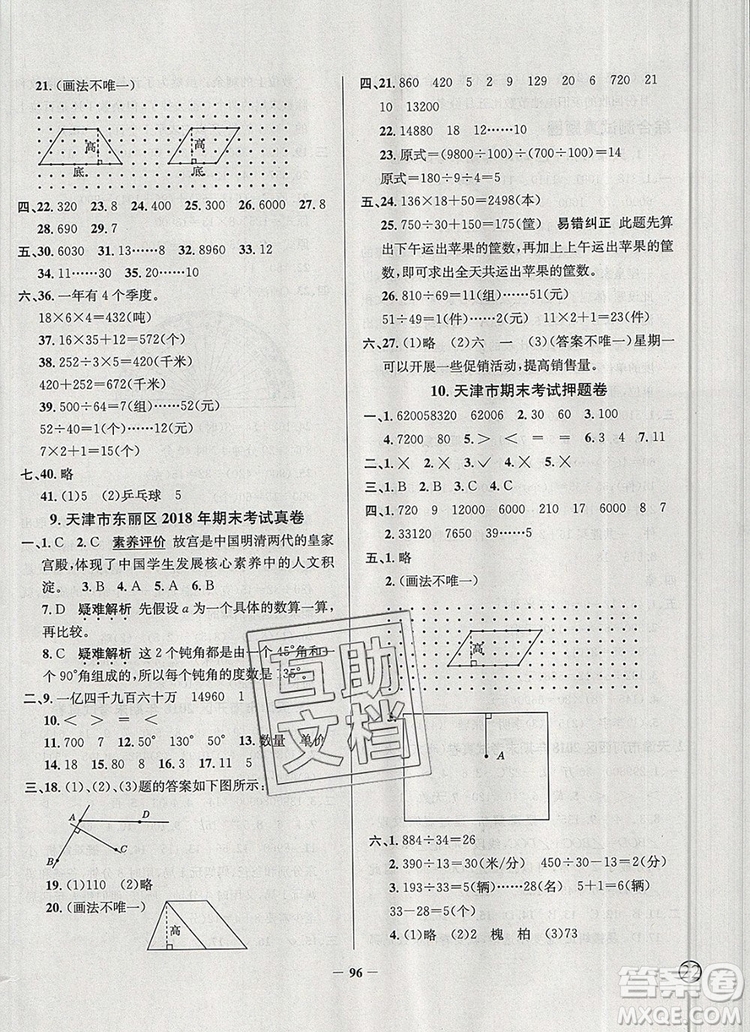 21.(画法不唯一)
高
底
高
底
四、22.320 23.8 24.6000 25.300 26.6000 27.8
28.690 29.7
五、30.6030 31.15……8 32.8960 33.12……30
34.11……30 35.10……200
六、36.一年有 4 个季度。
18×6×4=432(吨)
37.16×35+12=572(个)
38.252÷3×5=420(千米)
252÷3×5=420(千米)
39.500÷64=7(个)……52(元)
52÷40=1(个)……12(元)
7×2+1=15(个)
七、40.略
41.(1)5 (2)乒乓球 5
9.天津市东丽区 2018 年期末考试真卷
一、1.C 2.C 素养评价 故宫是中国明清两代的皇家
宫殿,体现了中国学生发展核心素养中的人文积
淀。 3.B 4.A 5.A 6.C
7.D 疑难解析 先假设 a 为一个具体的数算一算,
再比较。
8.C 疑难解析 这 2 个钝角都是由一个 45°角和一
个 90°角组成的,所以每个钝角的度数是 135°。
二、9.一亿四千九百六十万 14960 1
10.< > = <
11.700 70 12.50° 130° 50° 13.数量 单价
14.18 15.80 8 16.4 17.11
三、18.(1)、(2)、(3)题的答案如下图所示:
A
D
C
B
19.(1)110 (2)略
20.(画法不唯一)
高
四、21.860 420 625 7 6 60 720 21
10 13200
22.14880 18 12……7
23.原式=(9800÷100)÷(700÷100)=14
原式=180÷9÷4=5
五、24.136×18+50=2498(本)
25.750÷30+150=175(筐) 易错纠正 此题先算
出下午运出苹果的筐数,再加上上午运出苹果的
筐数,即可求出全天共运出苹果的筐数。
26.810÷69=11(组)……51(元)
51÷49=1(件)……2(元) 11×2+1=23(件)
六、27.(1)略 (2)六 一 (3)(答案不唯一)星期一
可以开展一些促销活动,提高销售量。
10.天津市期末考试押题卷
一、1.620058320 62006 2.30 60 3.100
4.7200 80 5.> < = = 6.8.3 4 7.11
二、1.× 2.× 3.× 4.✓ 5.×
三、1.C 2.C 3.A 4.C 5.B
四、1.720 9 12000 6000 12000 8 6 7
2.33120 7657 15……40
五、1.略
2.(画法不唯一)
高
3.
A
六、1.884÷34=26
2.390÷13=30(分) 450÷30-13=2(分)
3.193÷33=5(辆)……28(名) 5+1=6(辆)
33-28=5(个)
4.(1)略 (2)2 槐 柏 (3)73
96
22
互助
文档
答案圈
MXQE.COM